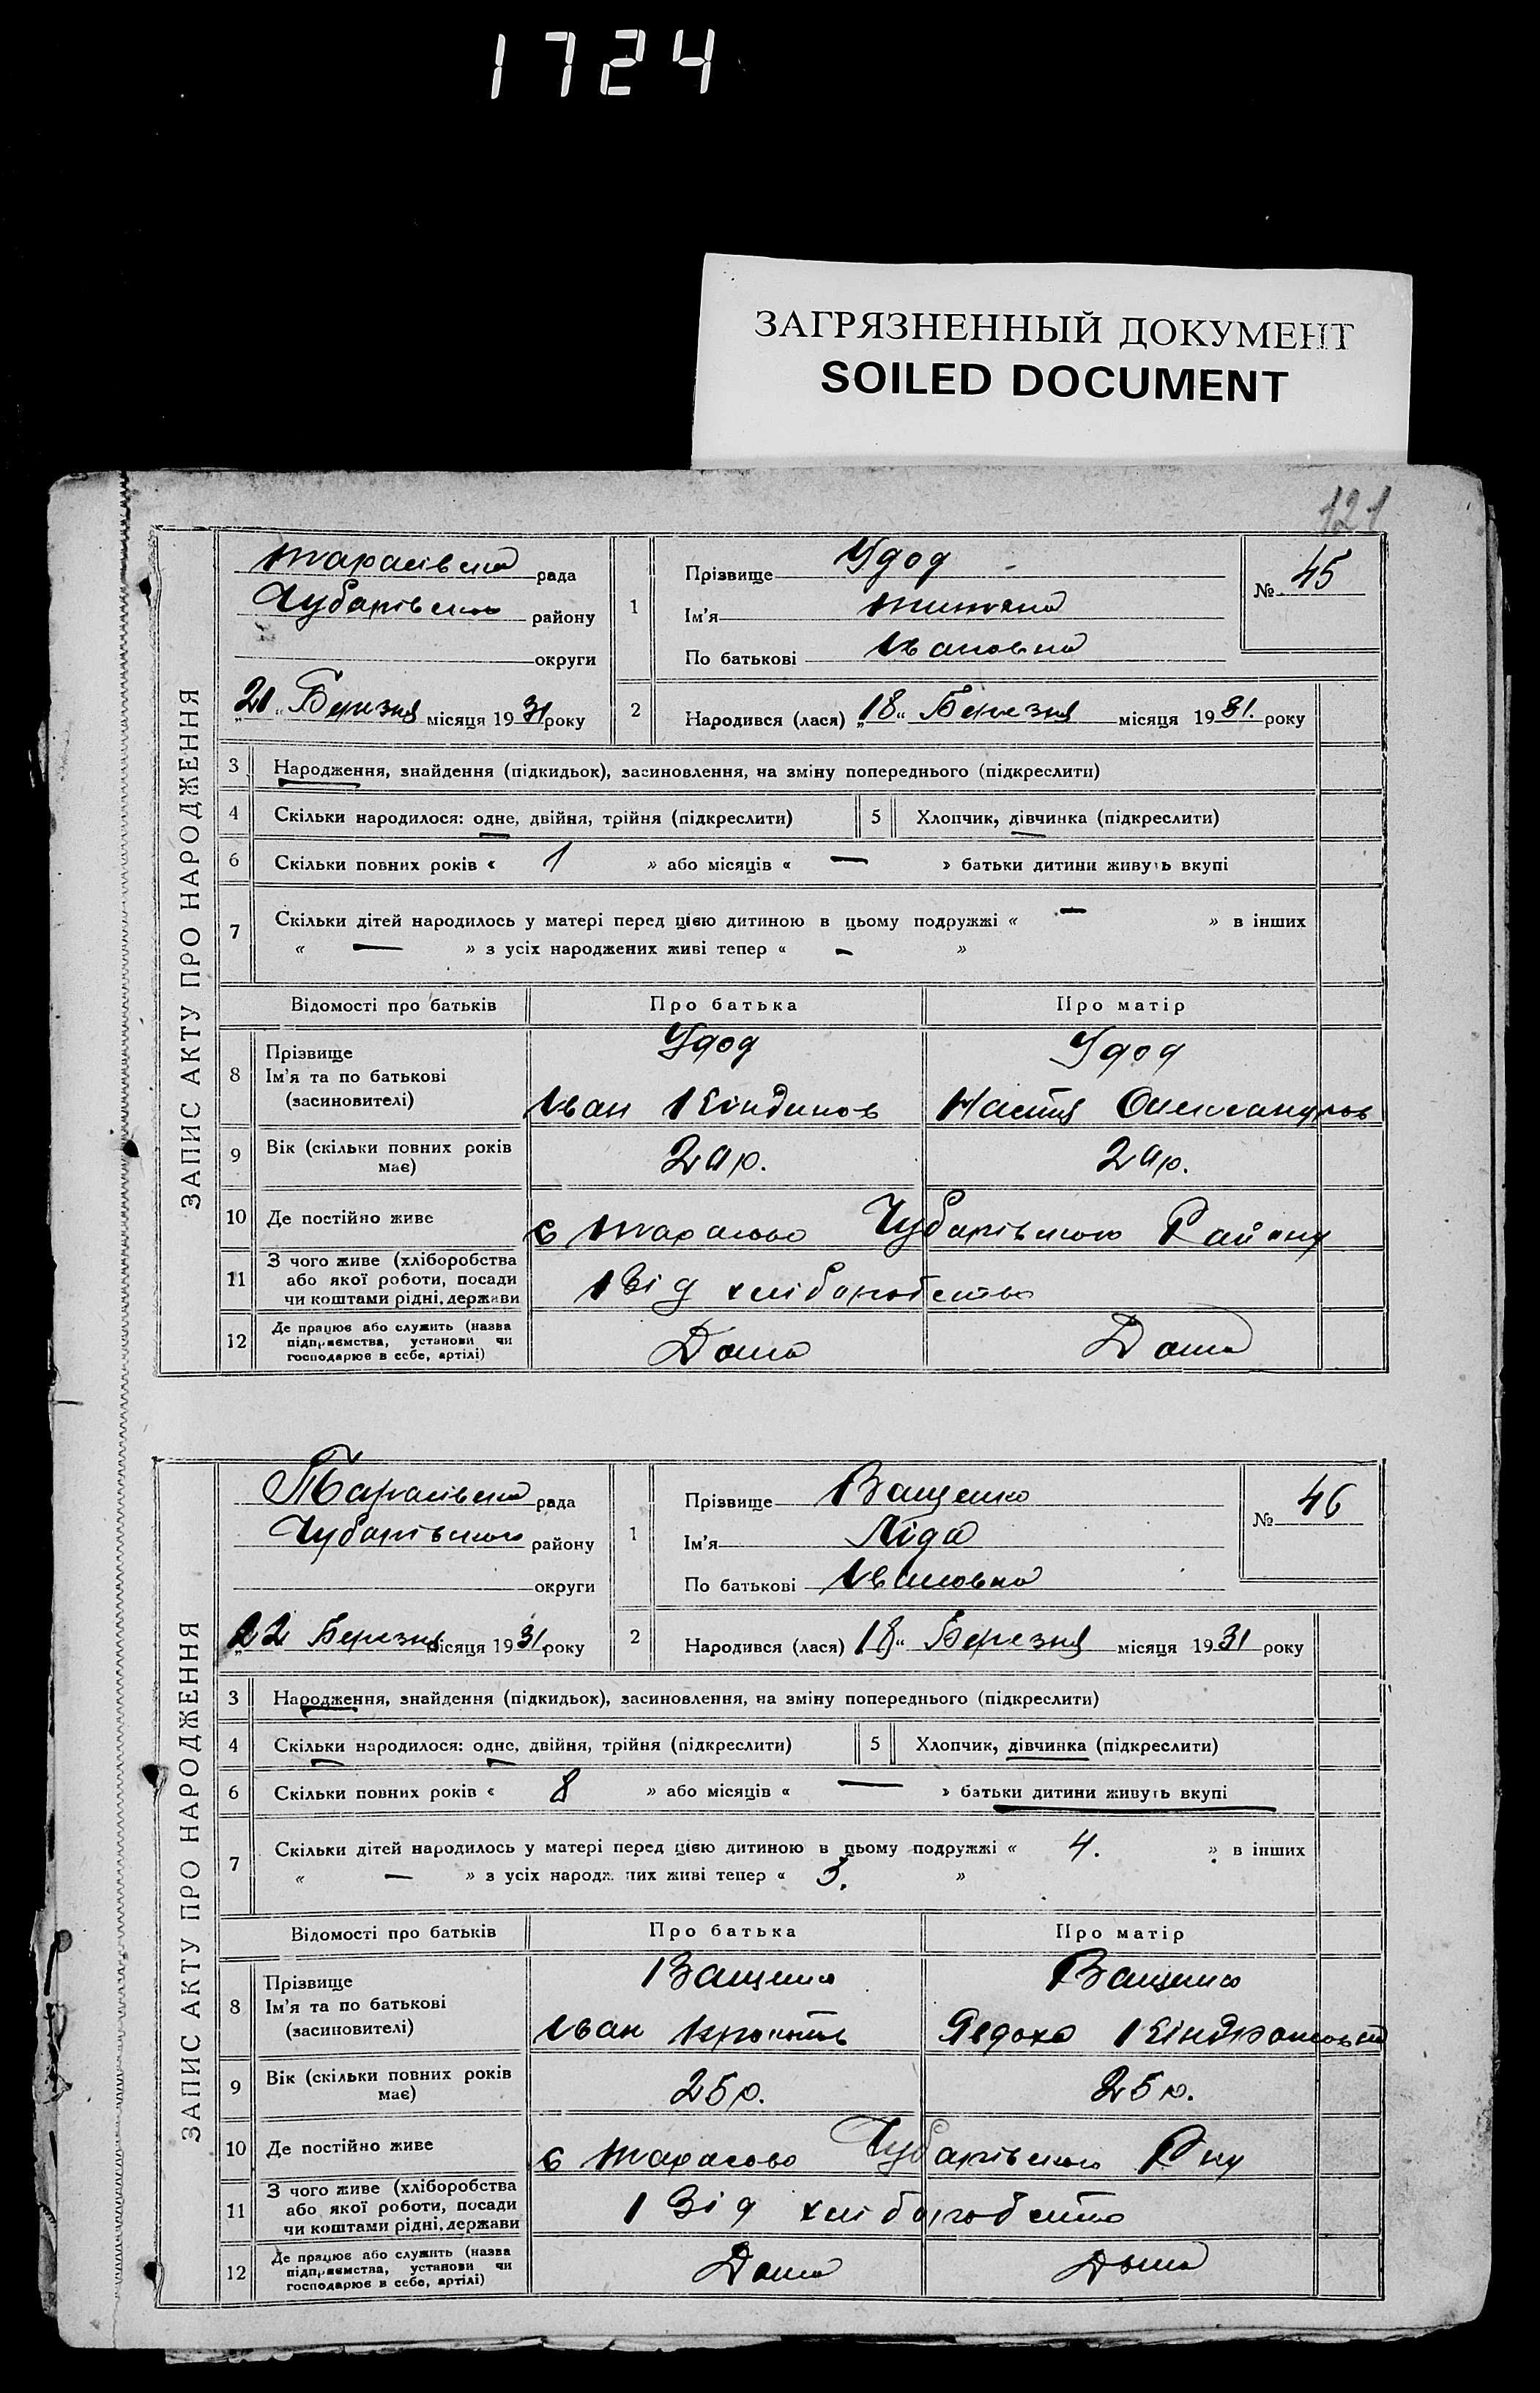 1724
ЗАГРЯЗНЕННЫЙ ДОКУМЕНТ
SOILED DOCUMENT
121
ЗАПИС АКТУ ПРО НАРОДЖЕННЯ
Тарасівська рада
Чубарівського району
округи
„21“ Березня місяця 1931 року
1 Прізвище Удод
Ім'я Титяна
По батькові Івановна
№ 45
2 Народився (лася) „18“ Березня місяця 1931. року
3 Народження, знайдення (підкидьок), засиновлення, на зміну попереднього (підкреслити)
4 Скільки народилося: одне, двійня, трійня (підкреслити) 5 Хлопчик, дівчинка (підкреслити)
6 Скільки повних років « 1 » або місяців « — » батьки дитини живуть вкупі
7 Скільки дітей народилось у матері перед цією дитиною в цьому подружжі « — » в інших
« — » з усіх народжених живі тепер « - »
Відомості про батьків Про батька Про матір
8 Прізвище Удод Удод
Ім'я та по батькові
(засиновителі) Іван Настя Олександров
9 Вік (скільки повних років має) р. р.
10 Де постійно живе с Тарасово Чубарівського Району
11 З чого живе (хліборобства або якої роботи, посади чи коштами рідні, держави Від хліборобства
12 Де працює або служить (назва підприємства, установи чи господарює в себе, артілі) Дома Дома
ЗАПИС АКТУ ПРО НАРОДЖЕННЯ
Тарасівська рада
Чубарівського району
округи
„22 Березня місяця 1931 року
1 Прізвище Ващенко
Ім'я Ліда
По батькові Івановна
№ 46
2 Народився (лася) 18“ Березня місяця 1931 року
3 Народження, знайдення (підкидьок), засиновлення, на зміну попереднього (підкреслити)
4 Скільки народилося: одне, двійня, трійня (підкреслити) 5 Хлопчик, дівчинка (підкреслити)
6 Скільки повних років « 8 » або місяців « — » батьки дитини живуть вкупі
7 Скільки дітей народилось у матері перед цією дитиною в цьому подружжі « 4. » в інших
« — » з усіх народжених живі тепер « 3. »
Відомості про батьків Про батька Про матір
8 Прізвище Ващенко Ващенко
Ім'я та по батькові
(засиновителі) Іван Явдоха
9 Вік (скільки повних років має) 25 р. 25 р.
10 Де постійно живе с Тарасово Чубарівського Рну
11 З чого живе (хліборобства або якої роботи, посади чи коштами рідні, держави Від хліборобства
12 Де працює або служить (назва підприємства, установи чи господарює в себе, артілі) Дома Дома